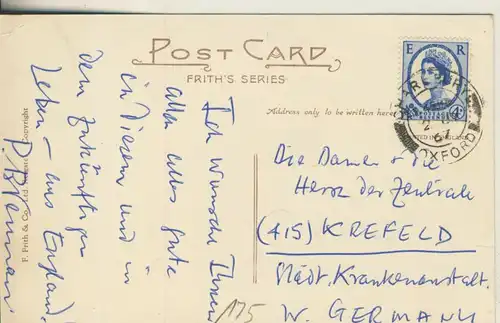 POST CARD
FRITH'S SERIES
Address only to be written here
E R
OXFORD
Ich wünsche Ihnen
allen alles gute
in diesem und in
dem zukünftigen
Leben - aus England.
P. Brennan
F. Frith & Co., Ltd. Copyright
Die Damen + die
Herrn der Zentrale
(415) KREFELD
Städt. Krankenanstalt.
W. GERMANY
175